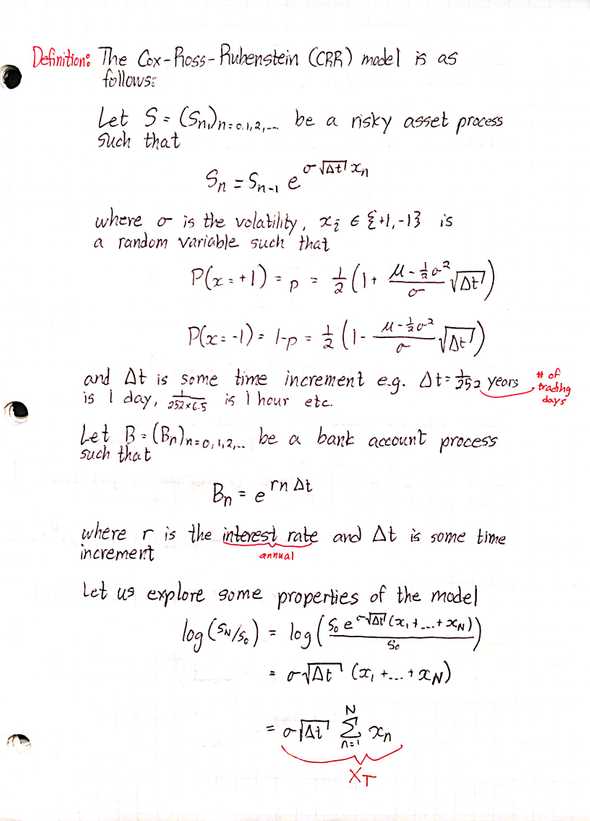 Definition: The Cox-Ross-Rubenstein (CRR) model is as
follows:
Let S = (Sn)n=0,1,2,... be a risky asset process
such that
Sn = Sn-1 e^(σ√Δt xn)
where σ is the volatility, xi ∈ {+1,-1} is
a random variable such that
P(x=+1) = p = 1/2 (1 + (μ - 1/2 σ²)/σ √Δt)
P(x=-1) = 1-p = 1/2 (1 - (μ - 1/2 σ²)/σ √Δt)
and Δt is some time increment e.g. Δt = 1/252 years
# of trading days
is 1 day, 1/(252×6.5) is 1 hour etc.
Let B = (Bn)n=0,1,2,... be a bank account process
such that
Bn = e^(rnΔt)
where r is the interest rate and Δt is some time
annual
increment
Let us explore some properties of the model
log(SN/S0) = log(S0 e^(σ√Δt (x1+...+xN))/S0)
= σ√Δt (x1+...+xN)
= σ√Δt Σ_{n=1}^{N} xn
XT